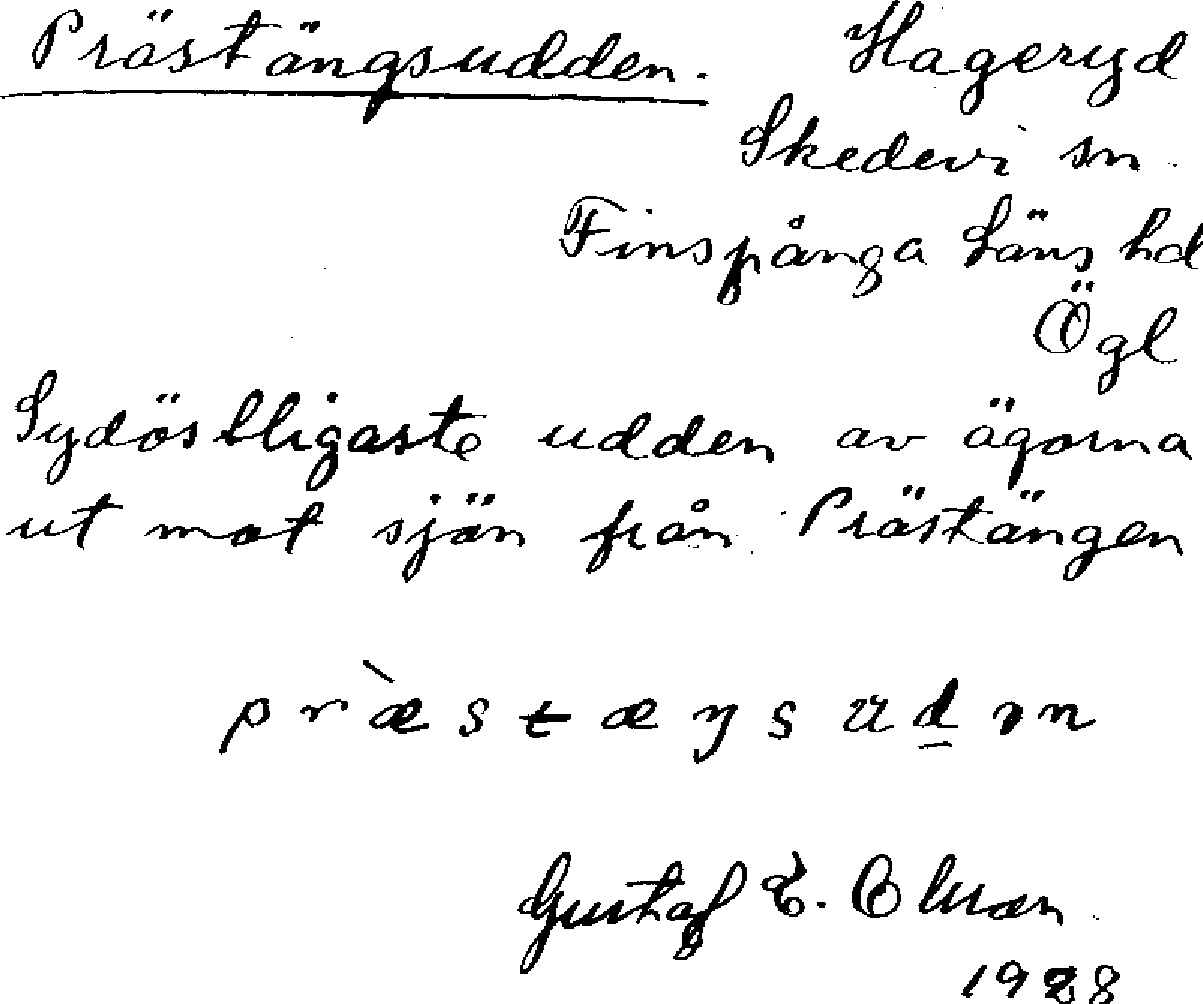 Prästängsudden. Hageryd
Skedevi sn.
Finspånga läns hd
Ögl
Sydöstligaste udden av ägorna
ut mot sjön från Prästängen
præstæŋsud̲ən
Gustaf E. Olsson
1928